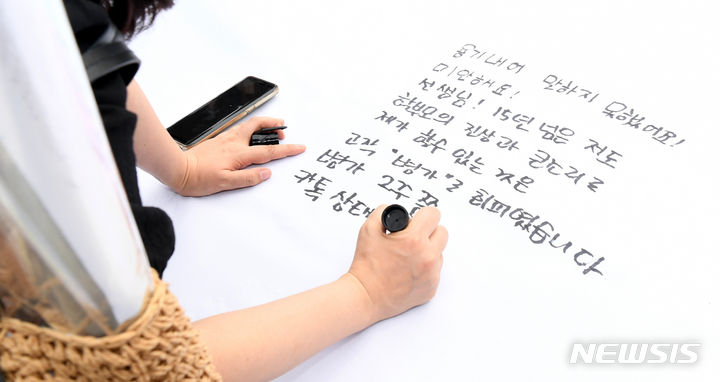 용기내어 말하지 못했어요!
미안해요!
선생님! 15년 넘은 저도
학부모의 진상과 곤조리로
제가 할수 있는 것은
고작 "병가"로 회피였습니다
병가 2주
상태
NEWSIS